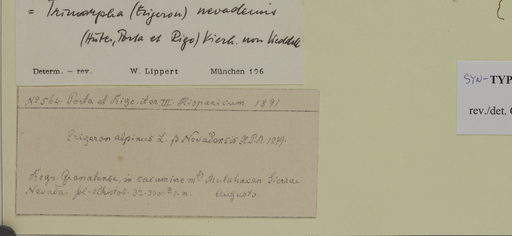 = Trimorpha (Erigeron) nevadensis
(Huter, Porta et Rigo) Vierh. non Wedd
Determ. – rev. W. Lippert München 196
SYN-TYP
rev./det.
No 564. Porta et Rigo. iter III. Hispanicum 1891
Erigeron alpinus L. β Nevadensis H.P.R. 1079.
Regn. Granatense, in cacumine mtis Mulahacen Sierrae
Nevada. sol. schistos. 32-3500 m s. m. Augusto.